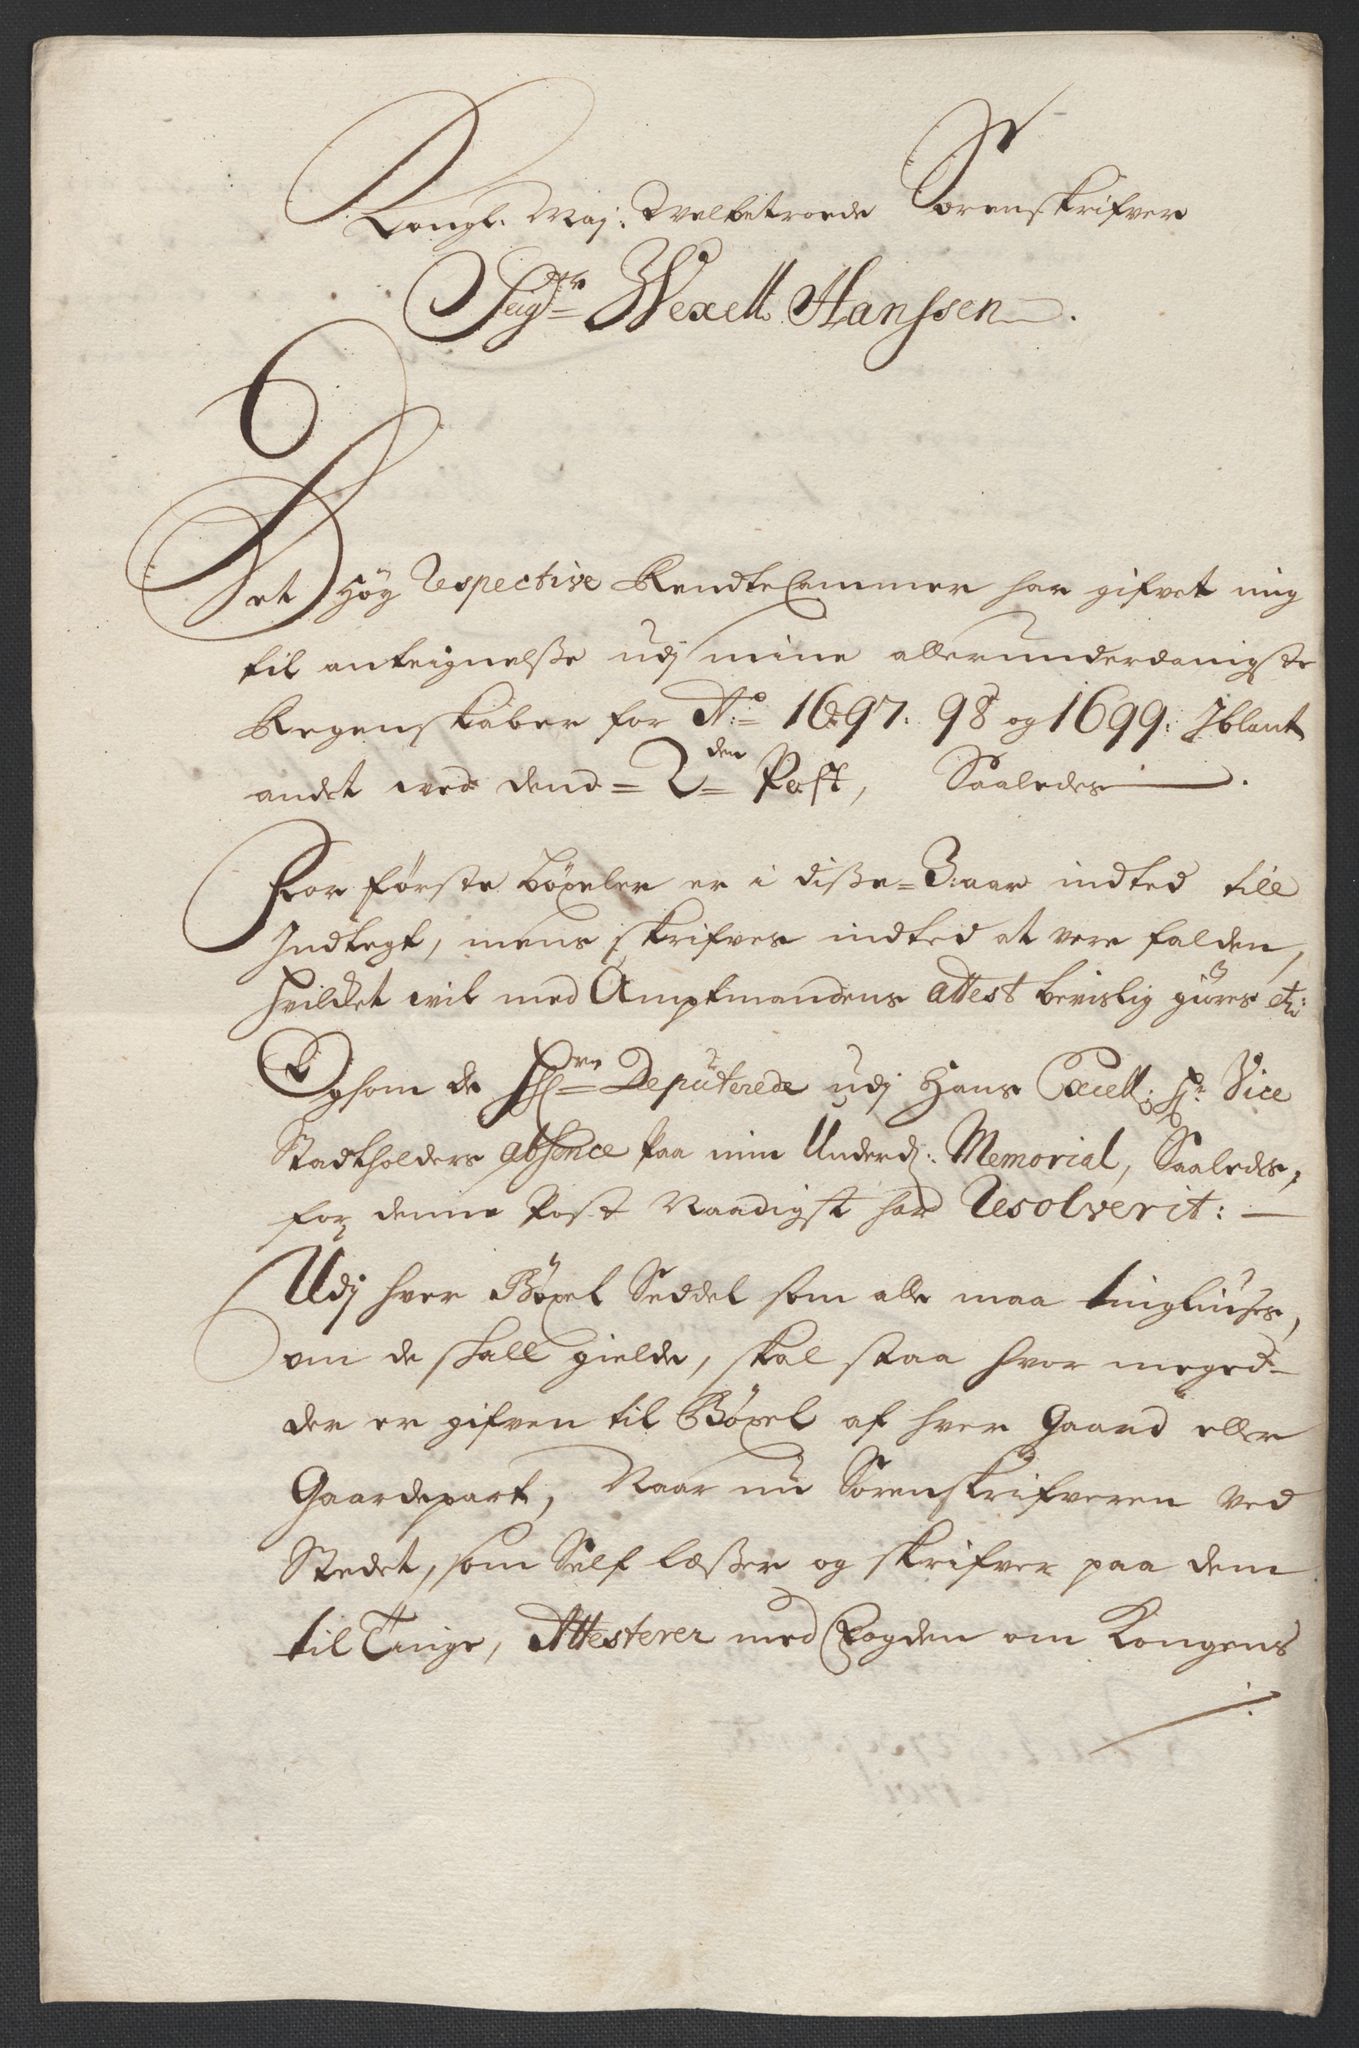 Kongl. Maj: Welbetroede Sorenskrifver
Sig.r Wexell Hanssen.
Det Høy Respective Rendte Cammer har gifvet mig
til anteignelsse udj mine allerunderdanigste
Regenskaber for A:o 1697. 98 og 1699: Iblant
andet ved dend = 2den Post, Saaledes
For første böxeler er i disse = 3: aar indted till
Indtegt, mens skrifves indted at vere falden,
hvilcket vil med Amptmandens attest bevislig giøres etc:
Ogsom de Hr.r Deputerede udj Hans Excell: Hr. Vice
Stadtholders absence paa min Underd: Memorial, Saaledes,
for denne Post Naadigst har Resolverit:
Udj hver Bøxel Seddel som alle maa tingliuses,
om de skall gielde, skal staa hvor meged
der er gifven til Bøxel af hver Gaard eller
Gaardepart, Naar nu Sorenskrifveren ved
Stedet, som Self læsser og skrifver paa dem
til Tinge, Attesterer med Fogden om Kongens